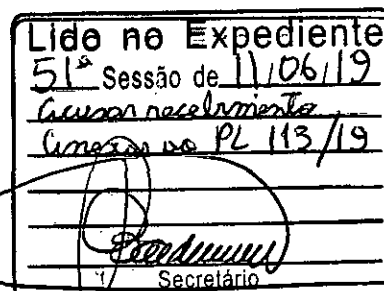 Lido no Expediente
51ª Sessão de 11/06/19
Acusar recebimento
Anexar ao PL 113/19
Secretário